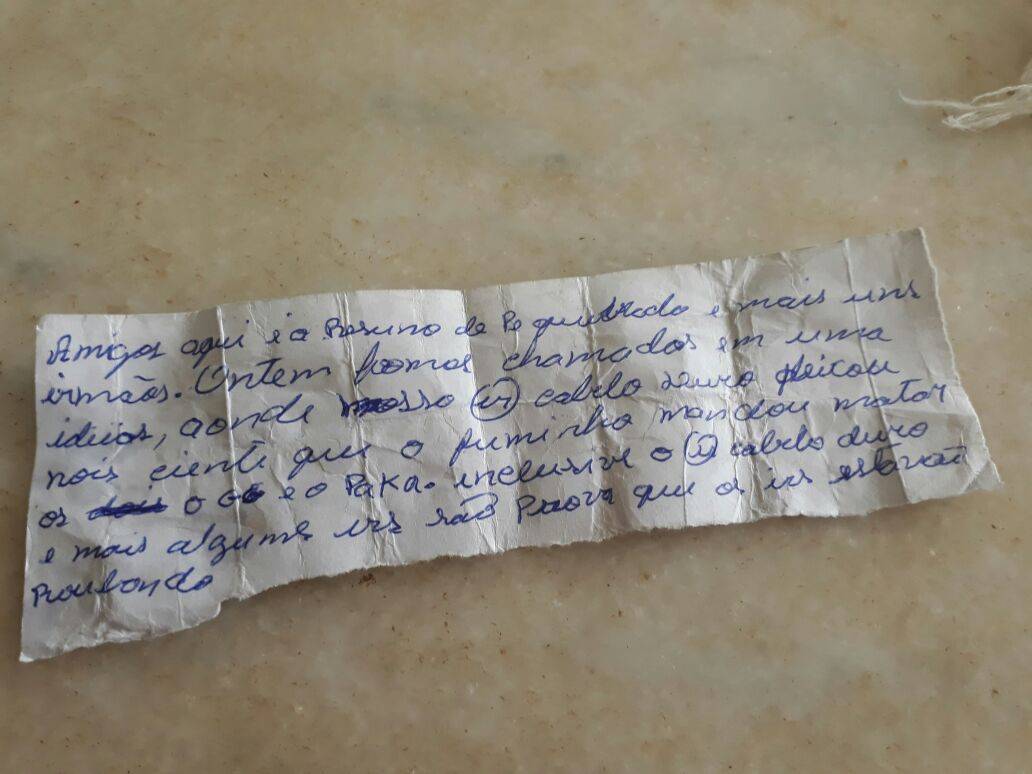 Amigos aqui é o Resumo da Pe quebrada e mais uns
irmãos. Ontem fomos chamados em uma
ideias, aonde nosso ir cabelo duro deixou
nois ciente que o fuminho mandou matar
os o GG e o Paka. inclusive o ir cabelo duro
e mais algums irs são Prova que os irs estavão
Roubando